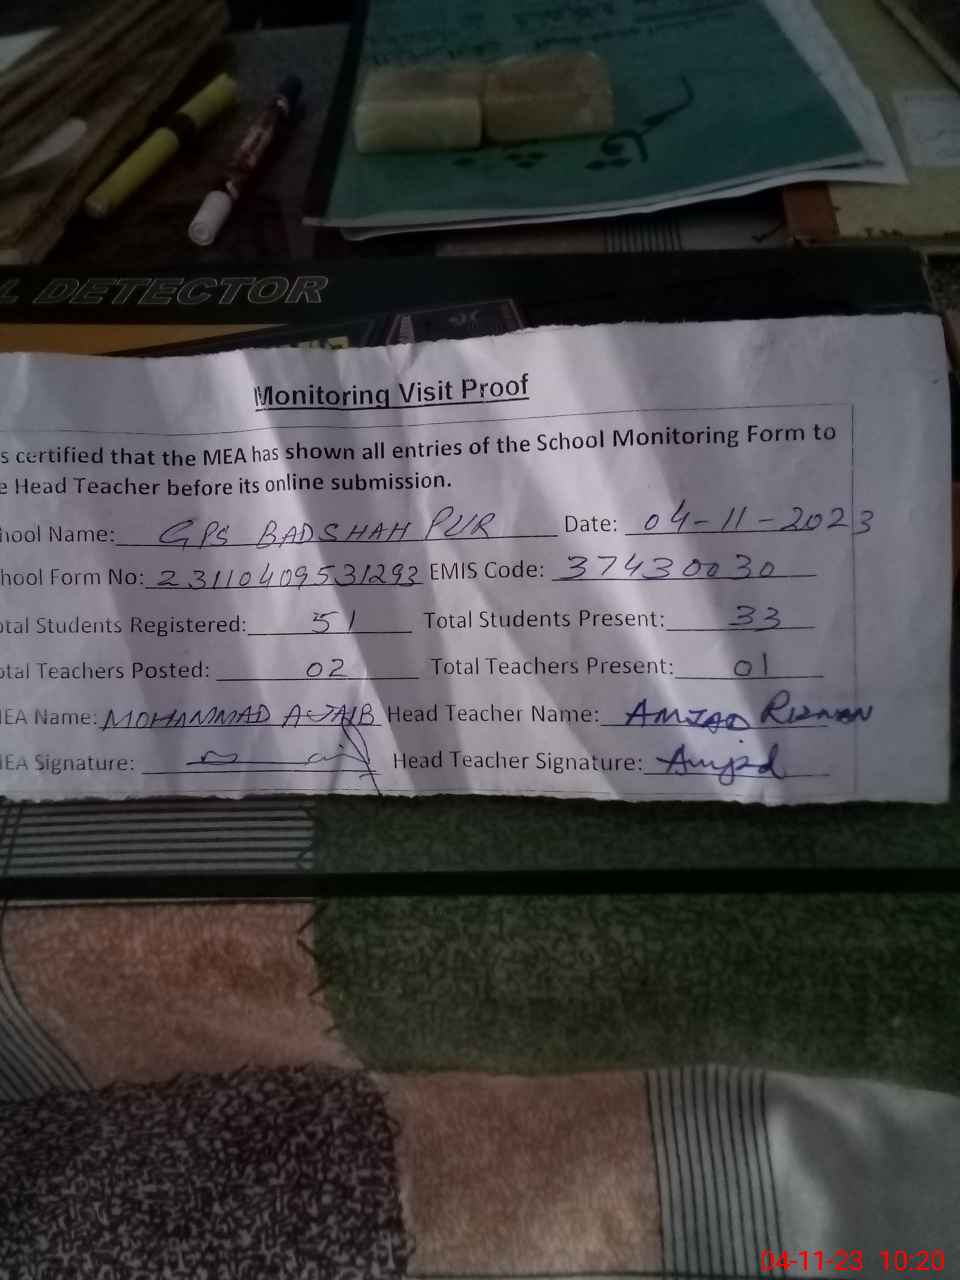 L DETECTOR
Monitoring Visit Proof
s certified that the MEA has shown all entries of the School Monitoring Form to
e Head Teacher before its online submission.
hool Name: GPS BADSHAH PUR Date: 04-11-2023
hool Form No: 23110409531293 EMIS Code: 37430030
otal Students Registered: 51 Total Students Present: 33
otal Teachers Posted: 02 Total Teachers Present: 01
IEA Name: MOHAMMAD AJAIB Head Teacher Name: AMJAD RIZWAN
IEA Signature: Head Teacher Signature: Amjad
04-11-23 10:20